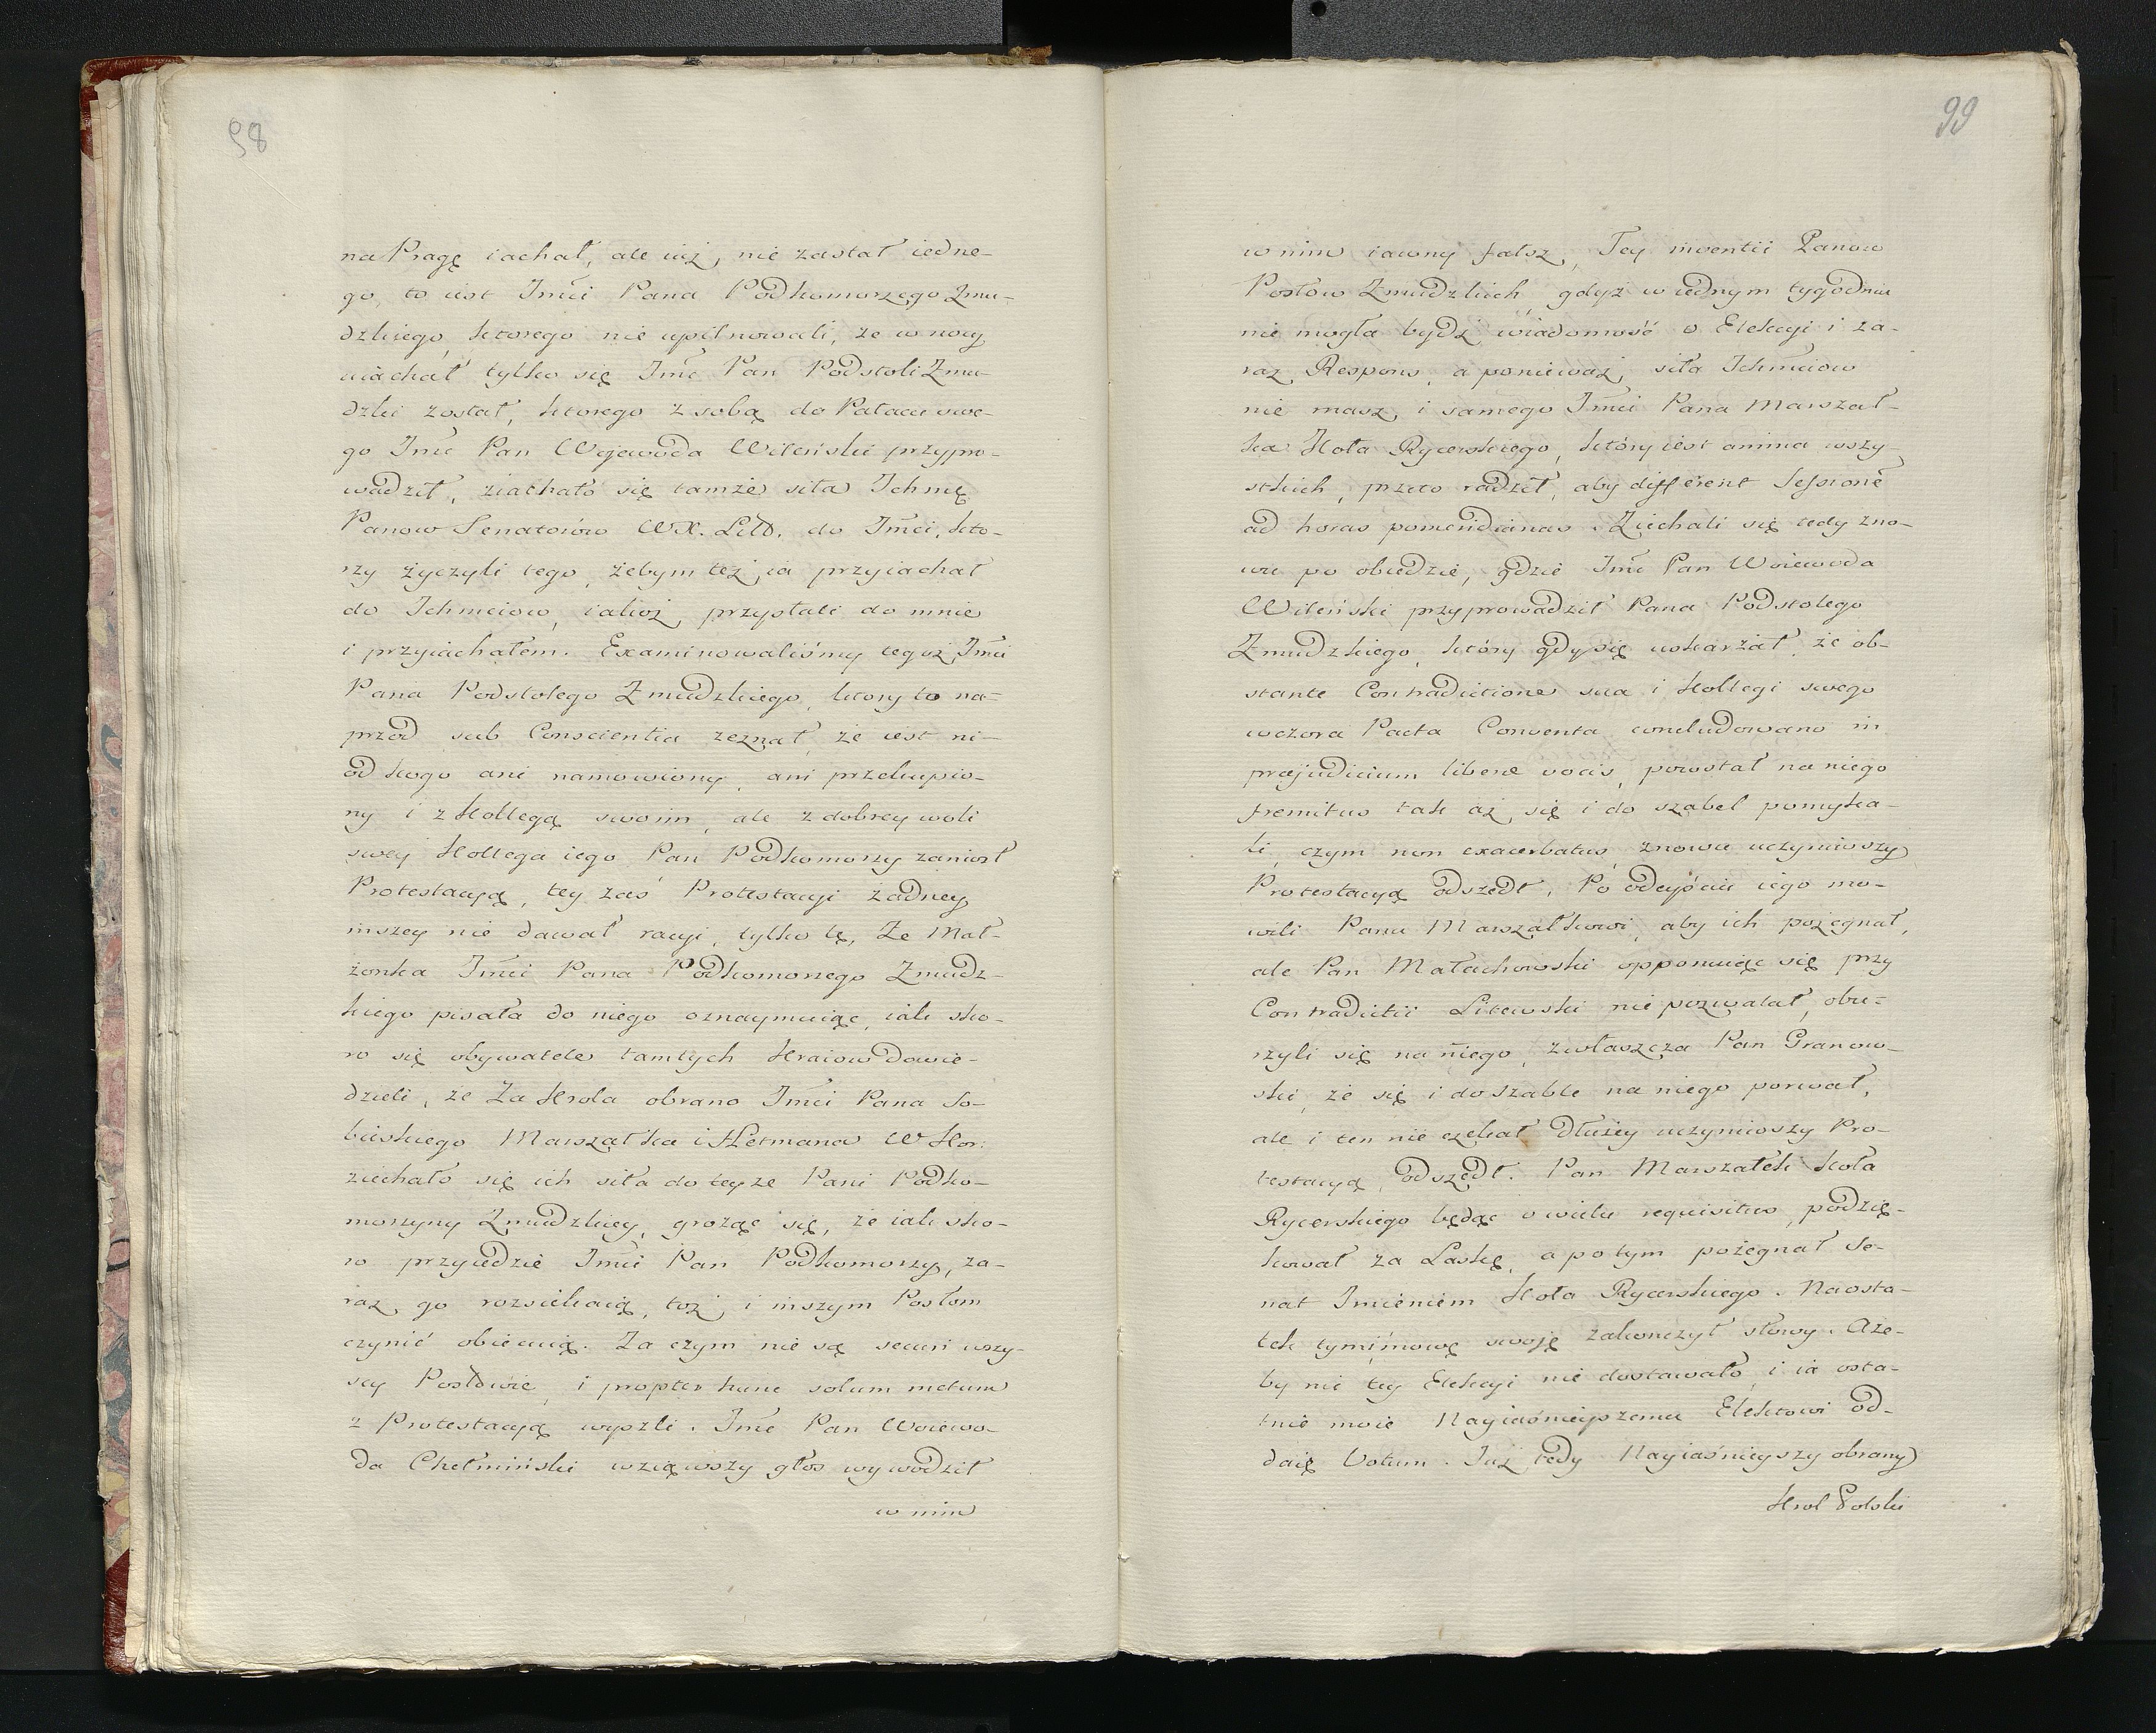 98
na Pragę iachał, ale iuż nie zastał iedne-
go, to iest Jmći Pana Podkomorzego Zmu-
dzkiego, ktorego nie upilnowali, że w nocy
uiachał tylko się Jmć Pan Podstoli Zmu-
dzki został, ktorego z sobą do Pałacu swe-
go Jmć Pan Wojewoda Wileński przypro-
wadził, ziachało się tamże siła Ichmę
Panow Senatorów WX. Litt. do Jmći, kto-
rzy życzyli tego, żebym też ia przyiachał
do Ichmciow, iakoż przysłali do mnie
i przyiachałem. Examinowaliśmy tegoż Jmći
Pana Podstolego Zmudzkiego, ktory to na-
przod sub Conscientia zeznał, że iest ni-
od kogo ani namowiony, ani przekupio-
ny i z Kollegą swoim, ale z dobrey woli
swey Kollega iego Pan Podkomorzy zaniosł
Protestacyą, tey zaś Protestacyi żadney
inszey nie dawał racyi, tylko tę, Że Mał-
żonka Jmći Pana Podkomorzego Zmudz-
kiego pisała do niego oznaymuiąc, iak sko-
ro się obywatele tamtych Kraiow dowie-
dzieli, że Za Krola obrano Jmći Pana So-
bieskiego Marszałka i Hetmana W Kor:
ziechało się ich siła do teyze Pani Podko-
morzyny Zmudzkiey, grożąc się, że iak sko-
ro przyiedzie Jmći Pan Podkomorzy, za-
raz go rozsiekaią, toż i inszym Posłom
czynić obiecuią. Za czym nie są securi wszy-
scy Posłowie, i propter hunc solum metum
z Protestacyą wyszli. Jmć Pan Woiewo-
da Chełmiński wziąwszy głos wywodził
w nim
99
w nim iawny fałsz, Tey inwentii Panow
Posłow Zmudzkich gdyż w iednym tygodniu
nie mogła bydź wiadomość o Elekcyi i za-
raz Respons, a ponieważ siła Ichmciow
nie masz, i samego Jmći Pana Marszał-
ka Koła Rycerskiego, który iest anima wszy-
stkich, przeto radził, aby different Sessione
ad horas pomeridianas. Ziechali się tedy zno-
wu po obiedzie, gdzie Jmć Pan Woiewoda
Wileński przyprowadził Pana Podstolego
Zmudzkiego, który gdy się uskarżał, że ob-
stante Contradictione sua i Kollegi swego
wczora Pacta Conventa concludowano in
præjudicium liberæ vocis, powstał na niego
fremitus tak aż się i do szabel pomyka-
li, czym non exacerbatus, znowu uczyniwszy
Protestacyą odszedł. Po odeyściu iego mo-
wili Panu Marszałkowi, aby ich pożegnał,
ale Pan Małachowski opponuiąc się przy
Contradictii Litewski nie pozwalał, obu-
rzyli się na niego, zwłaszcza Pan Granow-
ski, że się i do szable na niego porwał,
ale i ten nie czekał dłużey uczyniwszy Pro-
testacyą, odszedł. Pan Marszałek koła
Rycerskiego będąc o wielu requisitus, podzię-
kował za Laskę, a po tym pożegnał Se-
nat Imieniem Koła Rycerskiego. Naosta-
tek tymi mowę swoję zakończył słowy. Aże-
by nic tey Elekcyi nie dostawało, i ia osta-
tnie moie Nayiaśnieyszemu Elektowi od-
daię Votum. Już tedy Nayiaśnieyszy obrany
Krol Polski